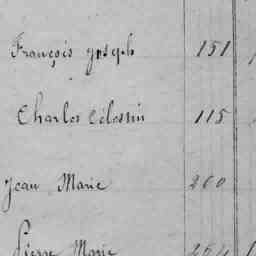 François Joseph 151
Charles Célestin 115
Jean Marie 260
Pierre Marie 264